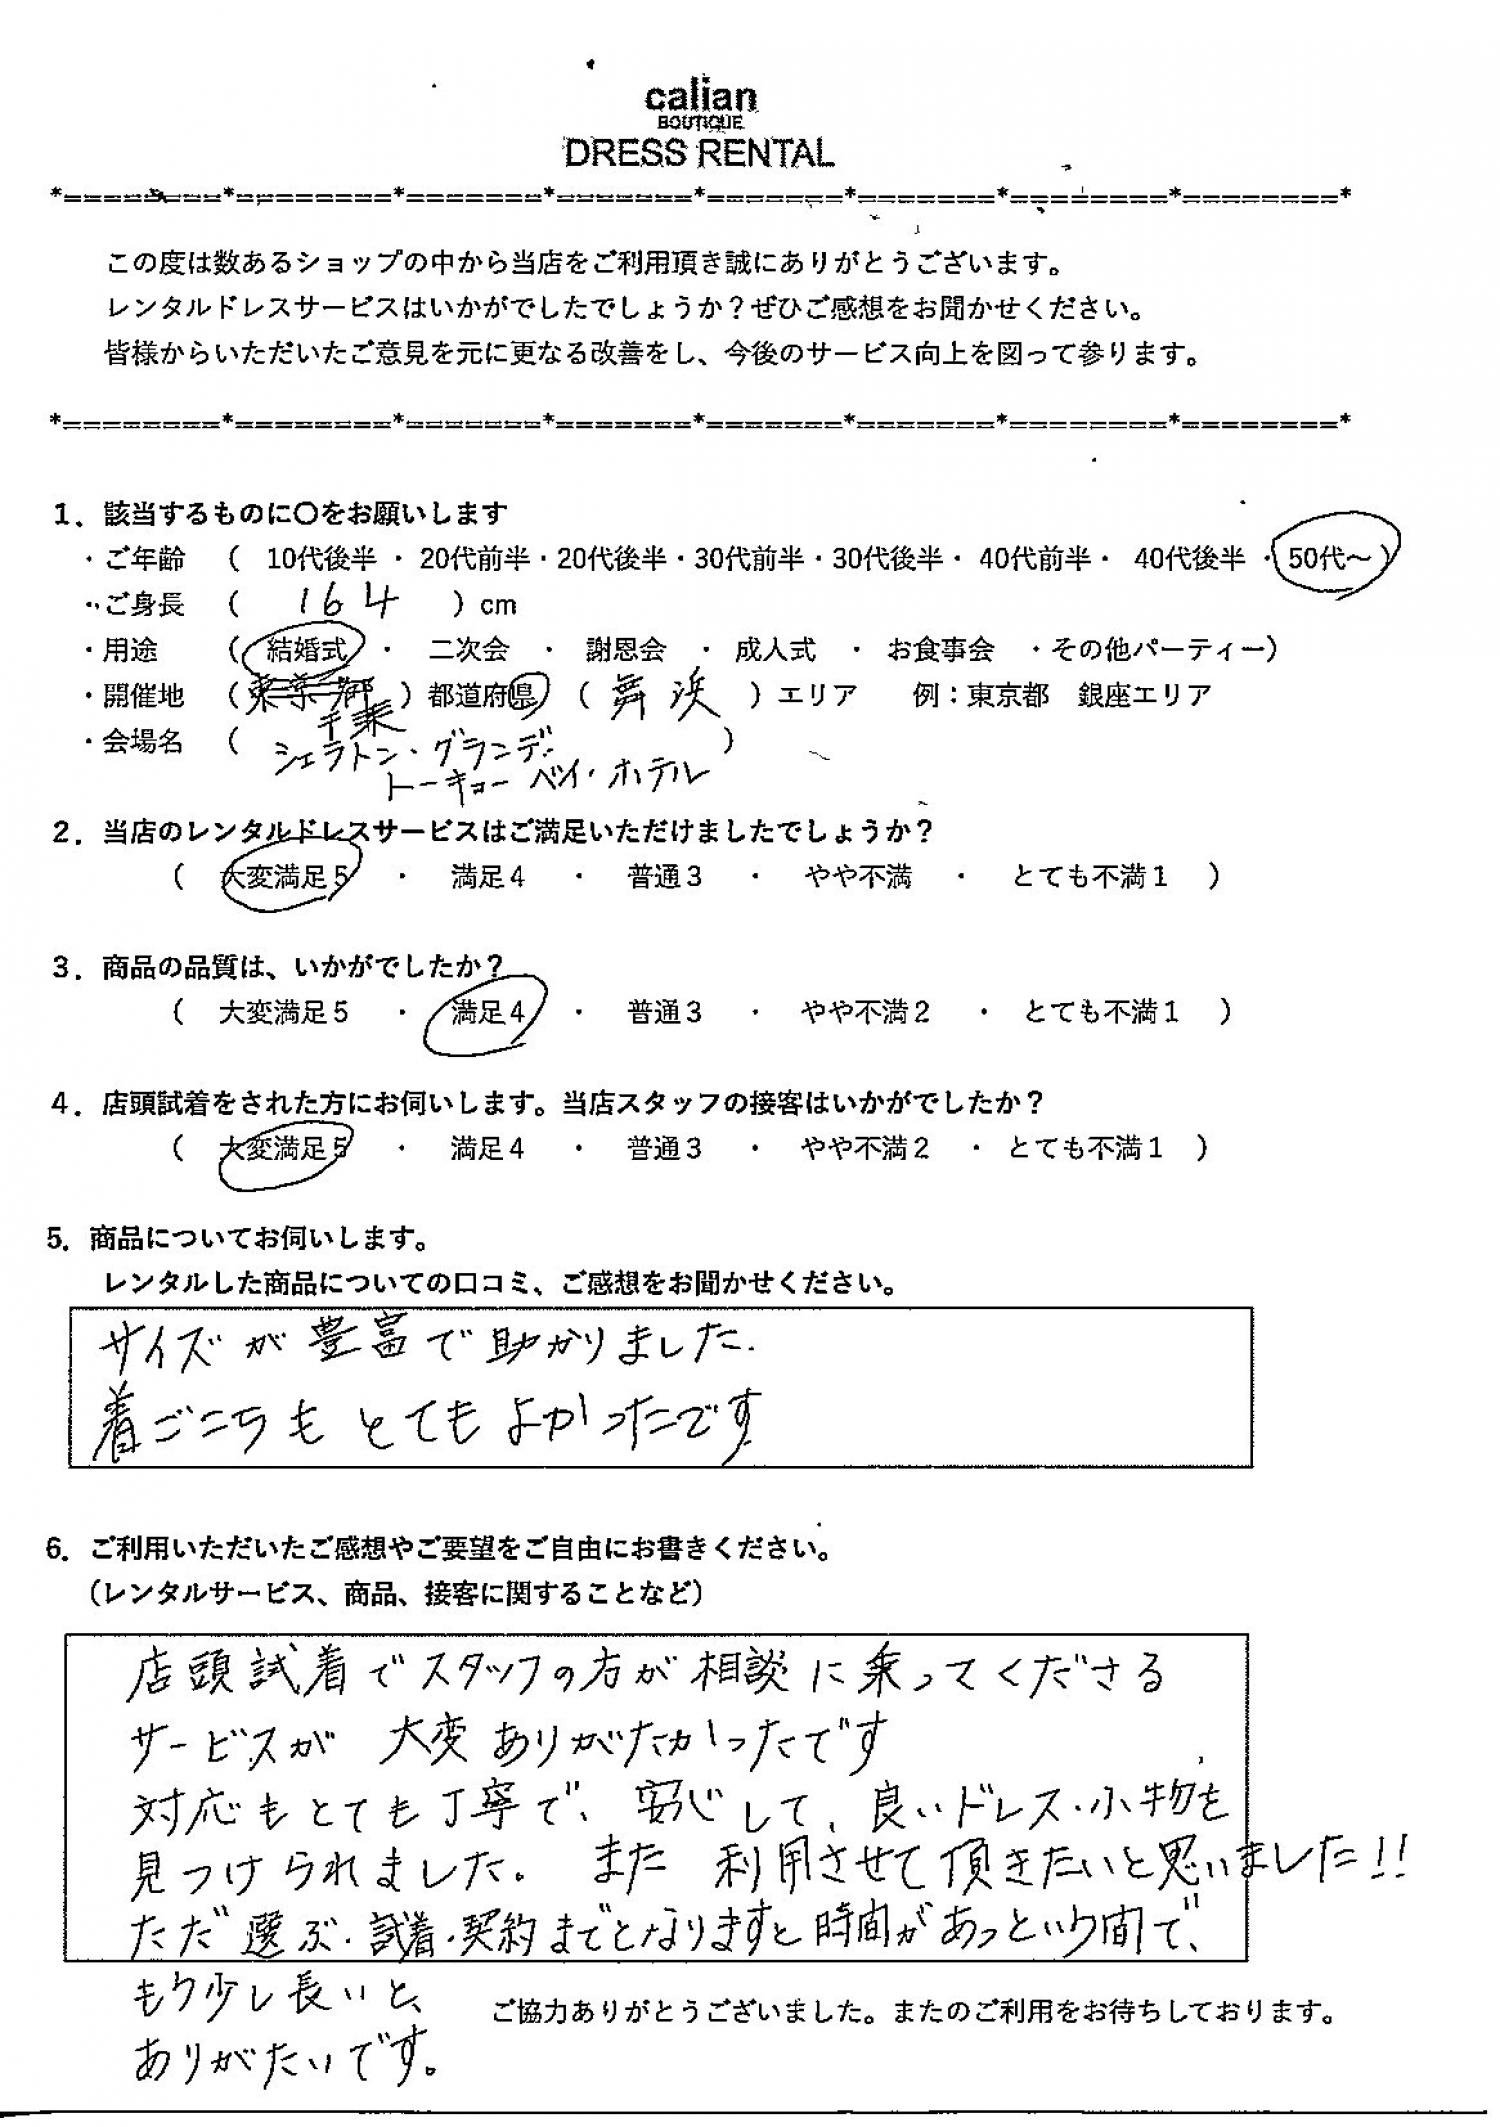 calian
BOUTIQUE
DRESS RENTAL
*========*========*=======*=======*=======*=======*========*========*
この度は数あるショップの中から当店をご利用頂き誠にありがとうございます。
レンタルドレスサービスはいかがでしたでしょうか？ぜひご感想をお聞かせください。
皆様からいただいたご意見を元に更なる改善をし、今後のサービス向上を図って参ります。
*========*========*=======*=======*=======*=======*========*========*
1．該当するものに〇をお願いします
・ご年齢 （ 10代後半 ・ 20代前半・20代後半・30代前半・30代後半・ 40代前半・ 40代後半 ・ 50代～ ）
・ご身長 （ 164 ）cm
・用途 （ 結婚式 ・ 二次会 ・ 謝恩会 ・ 成人式 ・ お食事会 ・その他パーティー）
・開催地 （東京都 ）都道府県 （ 舞浜 ）エリア 例：東京都 銀座エリア
千葉
・会場名 （ シェラトン・グランデ ）
トーキョーベイ・ホテル
2．当店のレンタルドレスサービスはご満足いただけましたでしょうか？
（ 大変満足５ ・ 満足４ ・ 普通３ ・ やや不満 ・ とても不満１ ）
3．商品の品質は、いかがでしたか？
（ 大変満足５ ・ 満足４ ・ 普通３ ・ やや不満２ ・ とても不満１ ）
4．店頭試着をされた方にお伺いします。当店スタッフの接客はいかがでしたか？
（ 大変満足５ ・ 満足４ ・ 普通３ ・ やや不満２ ・ とても不満１ ）
5．商品についてお伺いします。
レンタルした商品についての口コミ、ご感想をお聞かせください。
サイズが豊富で助かりました.
着ごこちもとてもよかったです
6．ご利用いただいたご感想やご要望をご自由にお書きください。
（レンタルサービス、商品、接客に関することなど）
店頭試着でスタッフの方が相談に乗ってくださる
サービスが 大変ありがたかったです
対応もとても丁寧で、安心して、良いドレス・小物を
見つけられました。 また 利用させて頂きたいと思いました!!
ただ選ぶ・試着・契約までとなりますと時間があっという間で、
もう少し長いと、
ご協力ありがとうございました。またのご利用をお待ちしております。
ありがたいです。